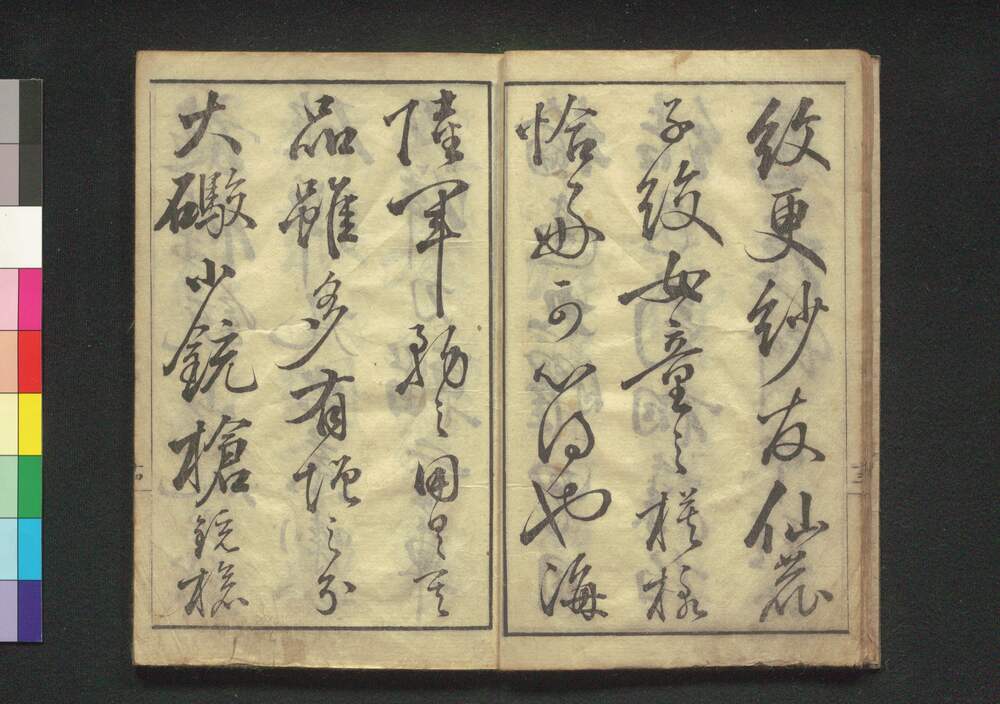 紋更紗友仙鹿
子絞女童之模様
恰好可心得也海
陸軍務之用具其
品雖多有増之分
大礮小銃槍銃槍